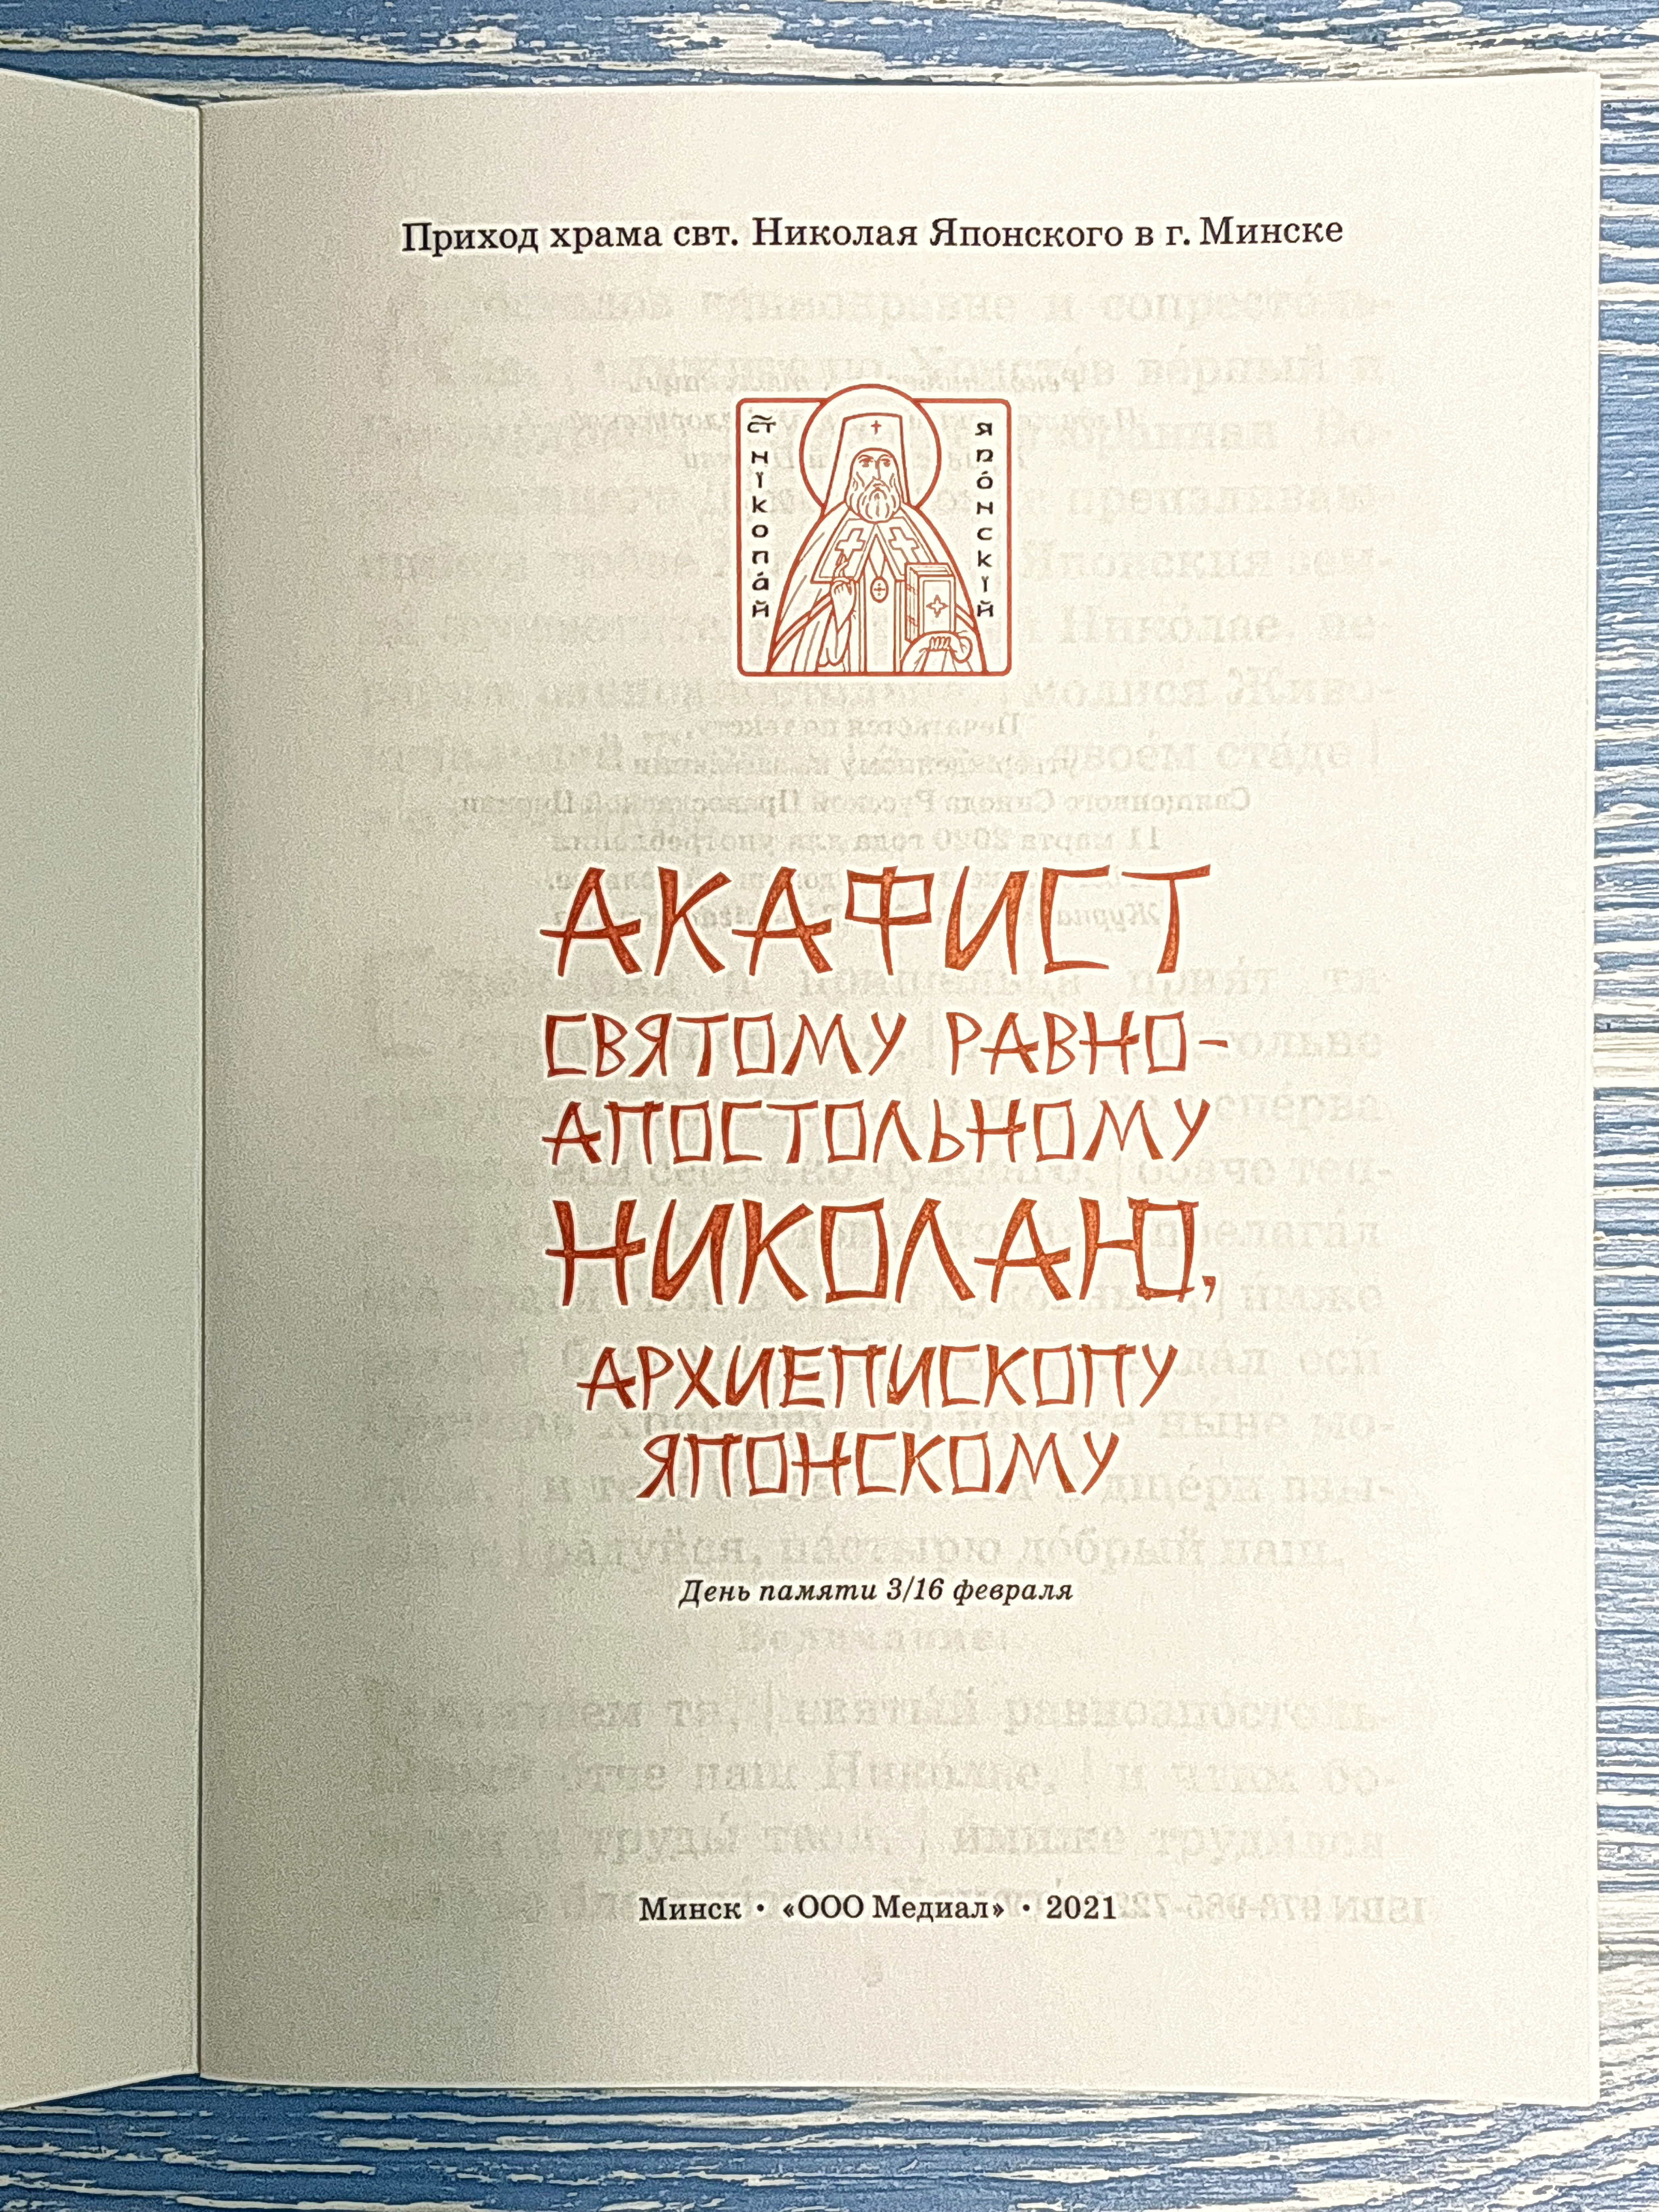 Приход храма свт. Николая Японского в г. Минске
СТ҃ НІКОЛА́Й
ЯПО́НСКІЙ
АКАФИСТ
СВЯТОМУ РАВНО-
АПОСТОЛЬНОМУ
НИКОЛАЮ,
АРХИЕПИСКОПУ
ЯПОНСКОМУ
День памяти 3/16 февраля
Минск • «ООО Медиал» • 2021